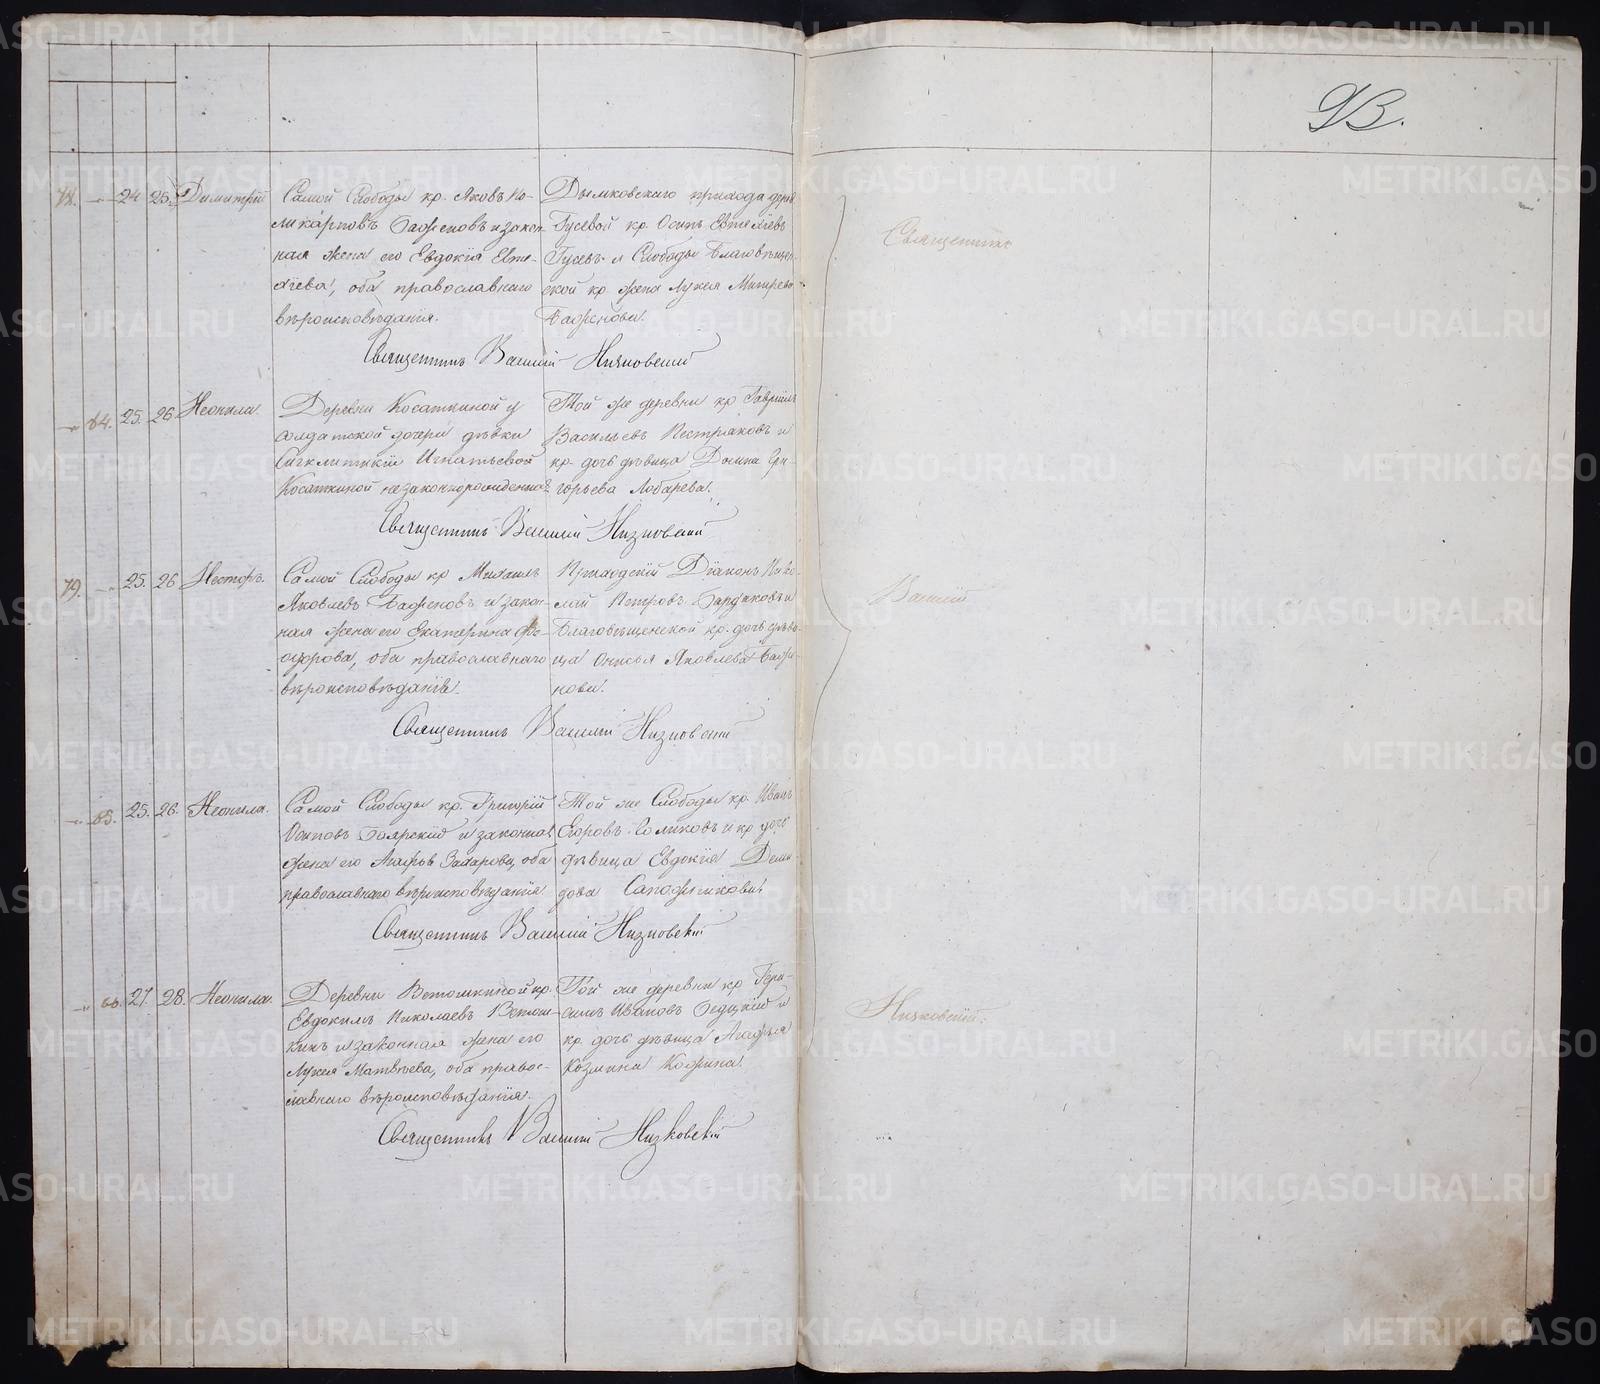 93.
78. 24 25. Димитрій
Самой Слободы кр. Яковъ По-
ликарповъ Баженовъ и закон-
ная жена его Евдокія Евти-
хіева, оба православнаго
вѣроисповѣданія.
Дымковскаго прихода дерев
Гусевой кр. Осипъ Евтихіевъ
Гусевъ и Слободы Благовѣщен-
ской кр. жена Лукія
Баженова.
Священникъ Василій Низковскій
84. 25. 26. Неонила.
Деревни Косаткиной у
солдатской дочери дѣвки
Сигклитикіи Игнатьевой
Косаткиной незаконнорожденная
Той же деревни кр. Гавріилъ
Васильевъ Пестряковъ и
кр. дочь дѣвица Домна Гри-
горьева Лобарева.
Священникъ Василій Низковскій
79. 25. 26 Несторъ.
Самой Слободы кр. Михаилъ
Яковлевъ Баженовъ и закон-
ная жена его Екатерина Фе-
одорова, оба православнаго
вѣроисповѣданія.
Приходскій Діаконъ Нико-
лай Петровъ и
Благовѣщенской кр. дочь дѣви-
ца Онисья Яковлева Баже-
нова.
Священникъ Василій Низковскій
85. 25. 26. Неонила.
Самой Слободы кр. Григорій
Осиповъ Боярскій и законная
жена его Агафья Захарова, оба
православнаго вѣроисповѣданія.
Той же Слободы кр. Иванъ
Егоровъ и кр. дочь
дѣвица Евдокія Деми-
дова Сапожникова.
Священникъ Василій Низковскій
86. 27. 28. Неонила.
Деревни Ветошкиной кр.
Евдокимъ Николаевъ Ветош-
кинъ и законная жена его
Лукія Матвѣева, оба правос-
лавнаго вѣроисповѣданія.
Той же деревни кр. Гера-
симъ Ивановъ и
кр. дочь дѣвица Агафья
Козмина Кожина.
Священникъ Василій Низковскій
Священникъ
Василій
Низковскій.
METRIKI.GASO-URAL.RU